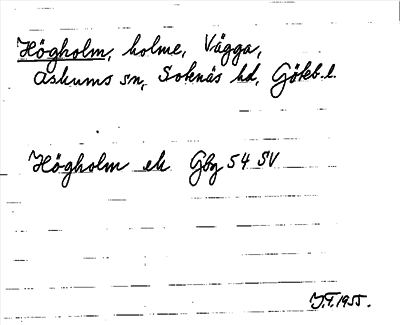 Högholm, holme, Vägga,
Askums sn, Sotenäs hd, Göteb. l.
Högholm ek Gbg 54 SV
1955.